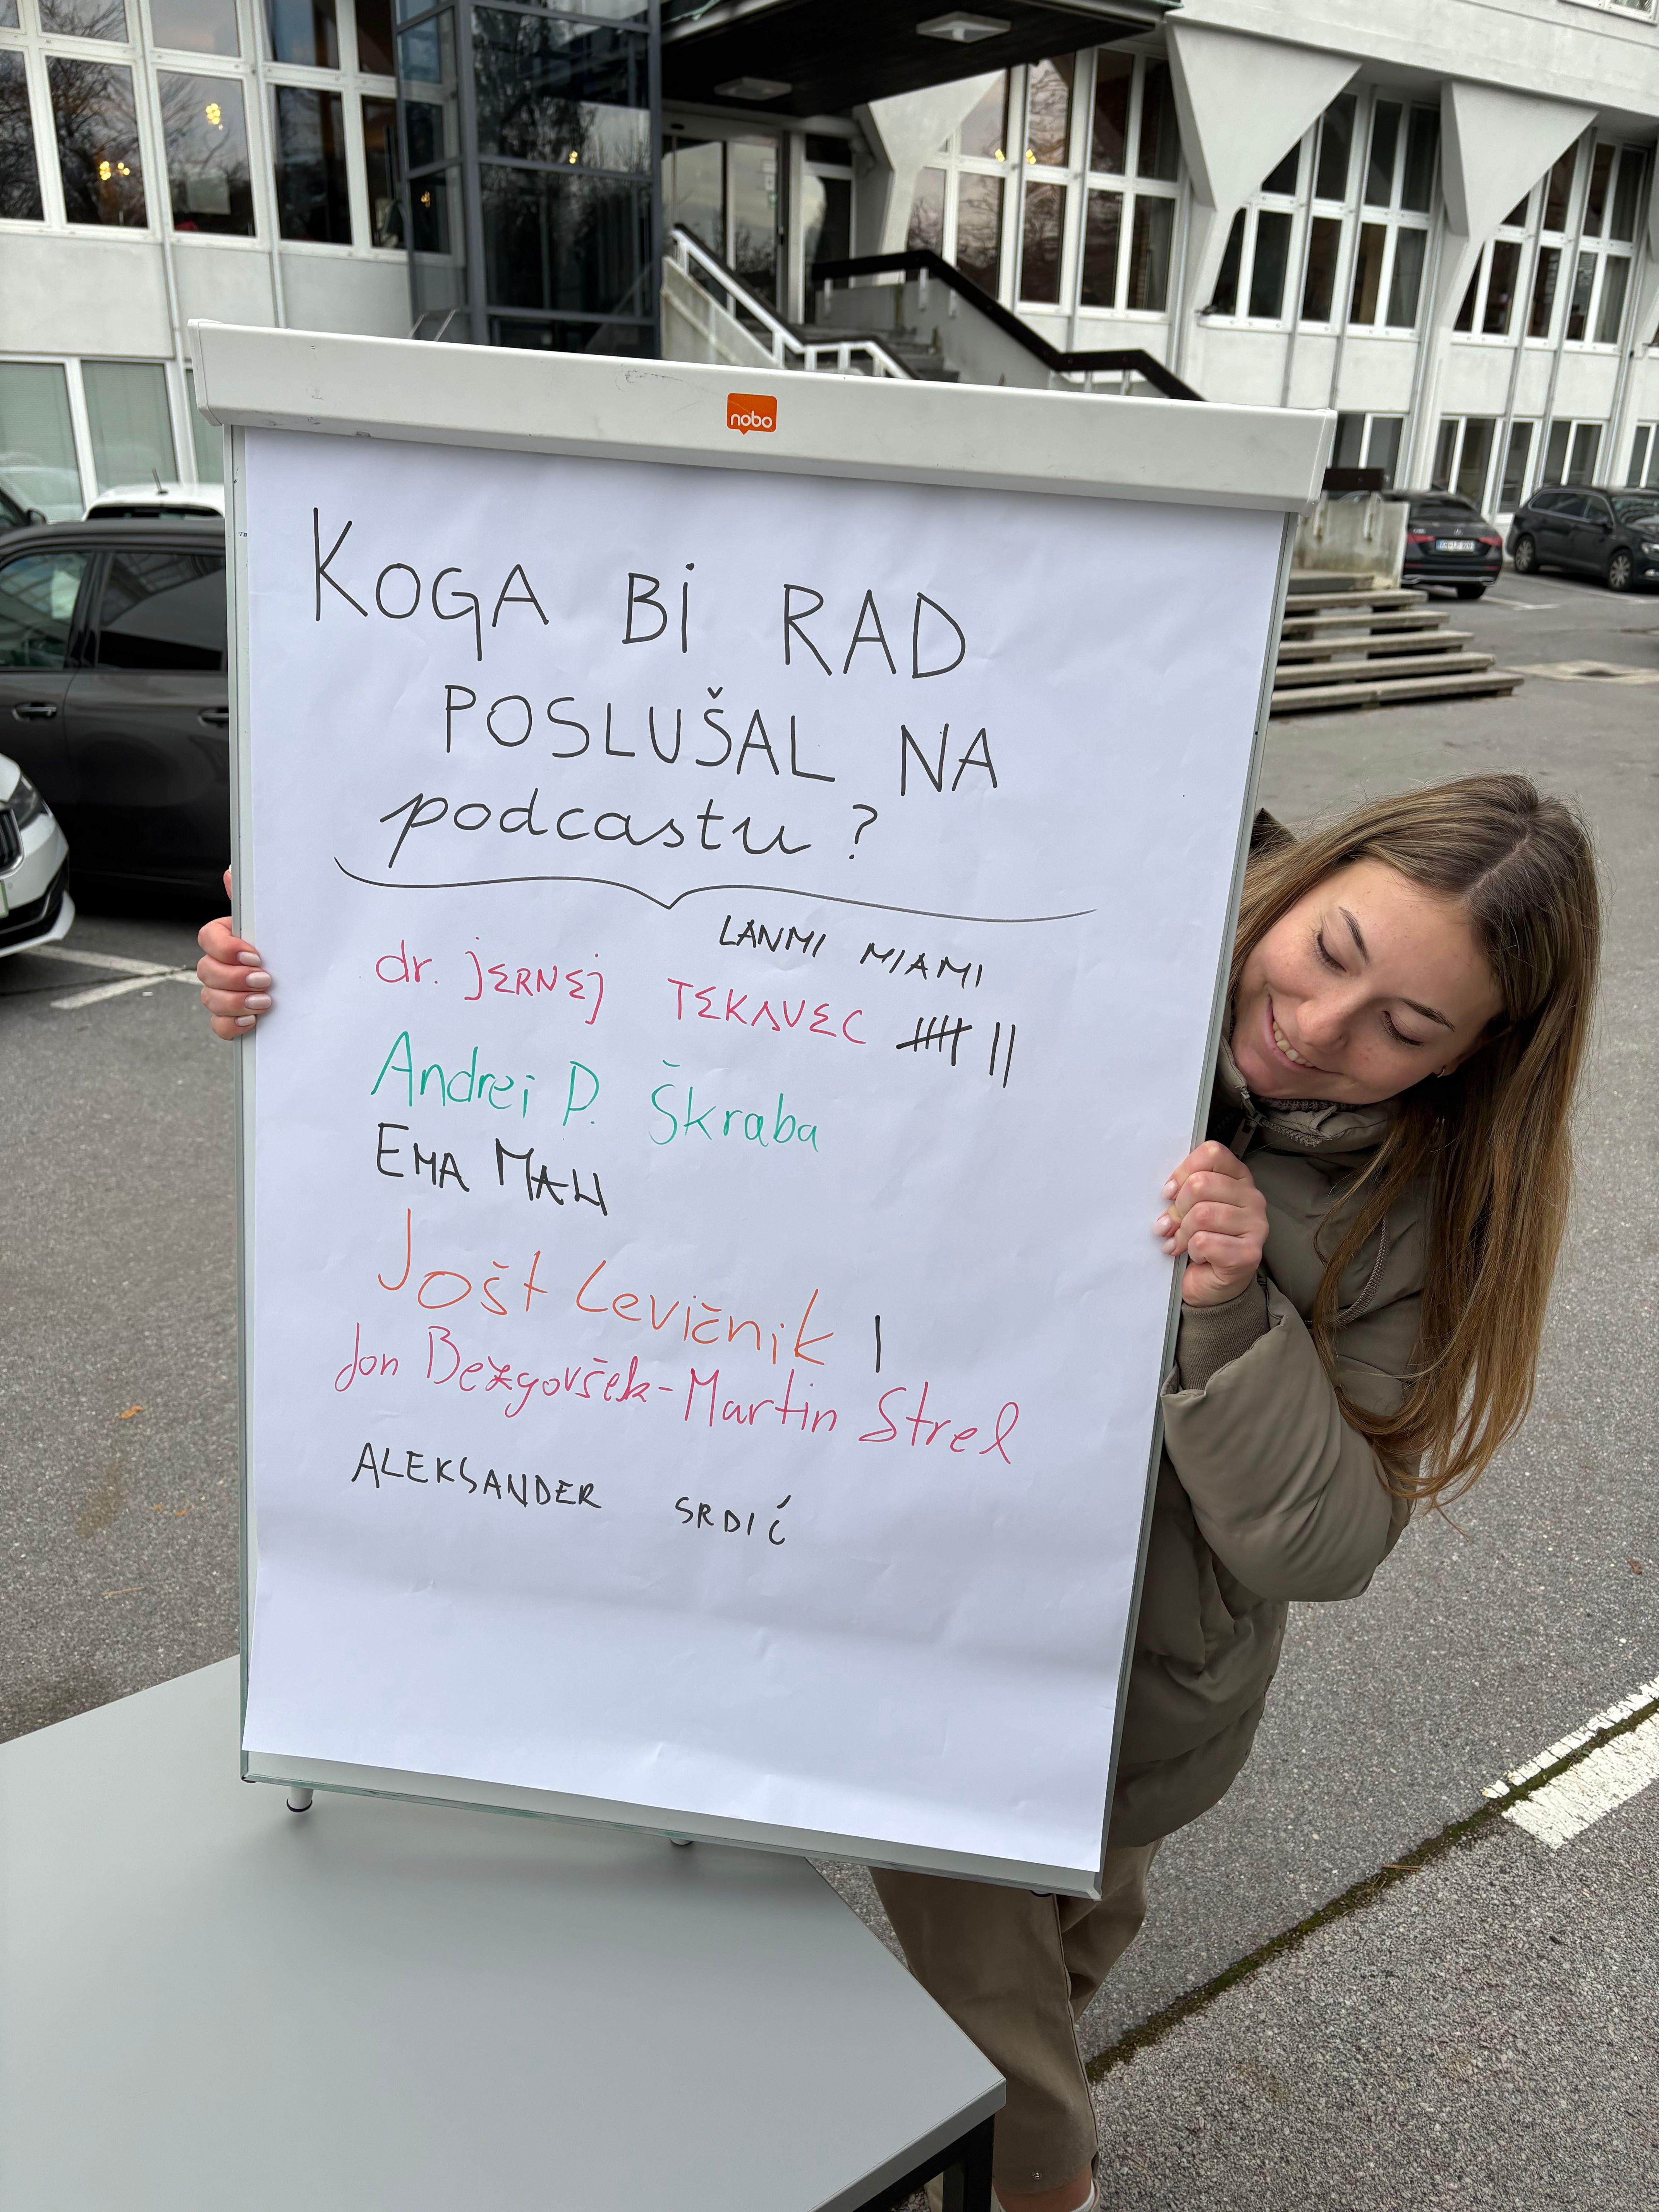 nobo
KOGA BI RAD
POSLUŠAL NA
podcastu?
LANMI MIAMI
dr. JERNEJ TEKAVEC
Andrei P. Škraba
EMA
Jošt Levičnik
Jon Bezgovšek-Martin Strel
ALEKSANDER SRDIĆ